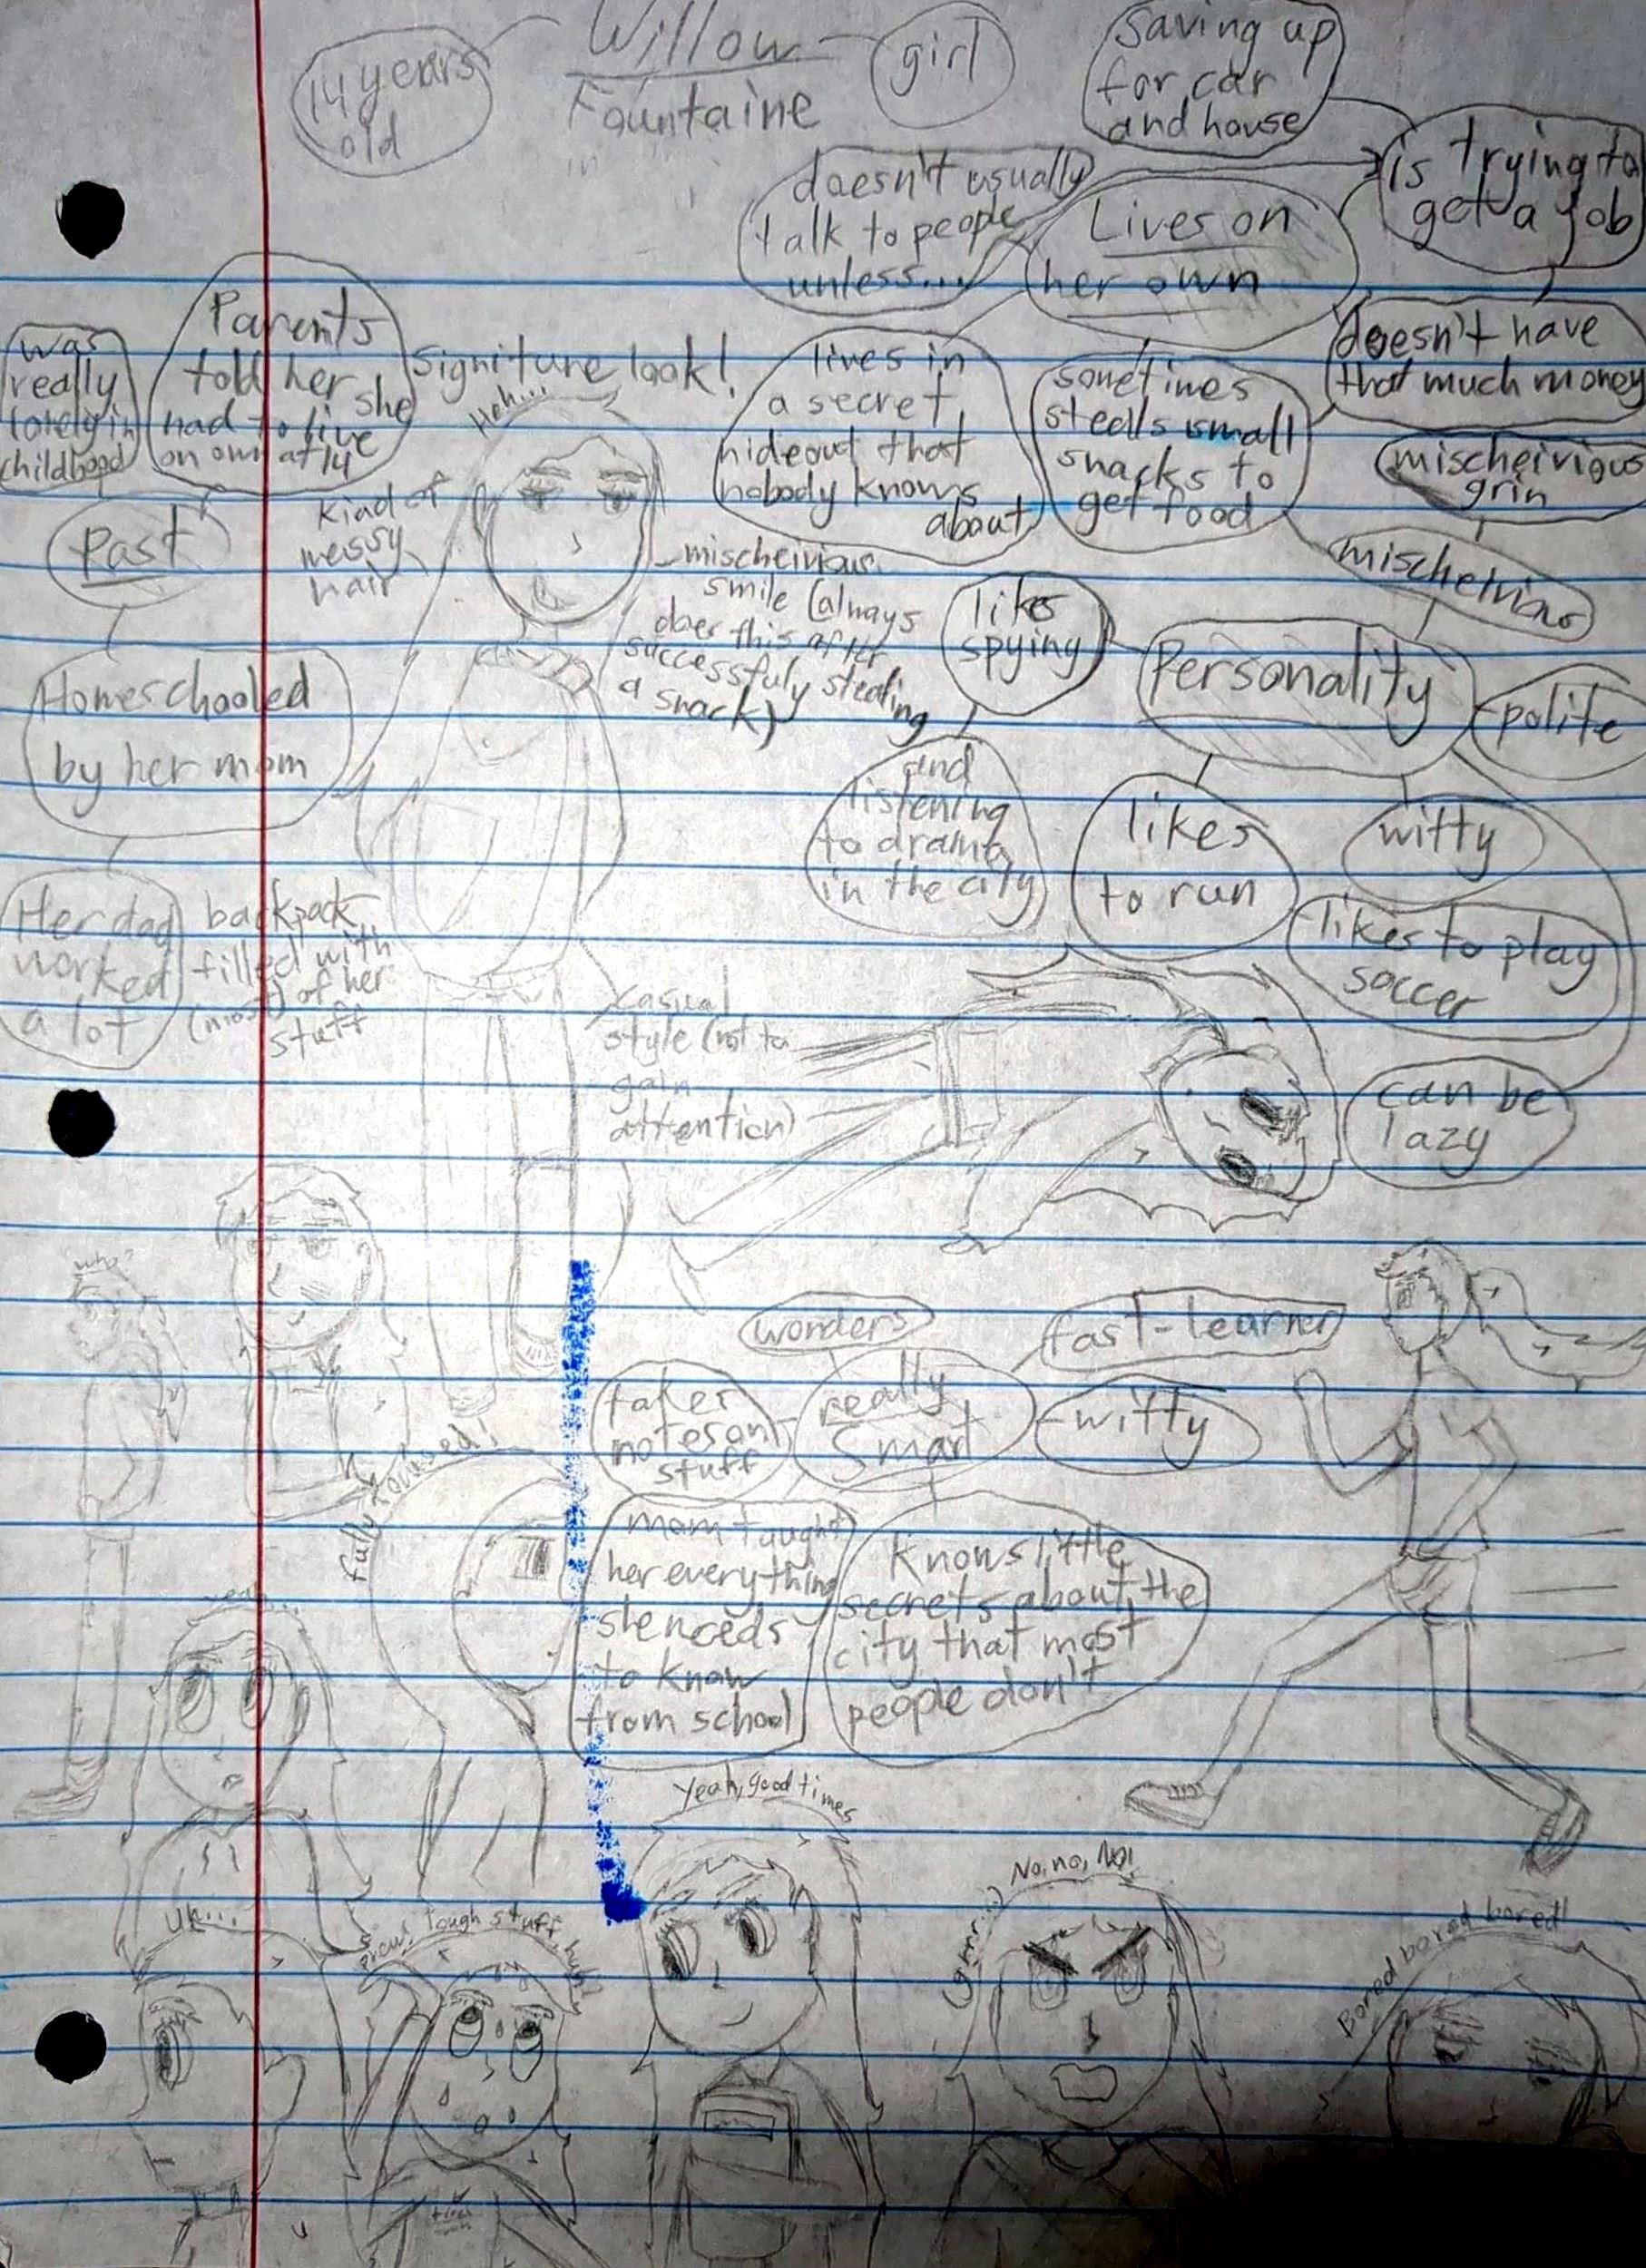 14 years
old
Willow
Fountaine
girl
saving up
for car
and house
is trying to
get a job
doesn't usually
talk to people
unless...
Lives on
her own
doesn't have
that much money
was
really
lonely in
childhood
Parents
told her she
had to live
on own at 14
Signiture look!
Heh...
lives in
a secret
hideout that
nobody knows
about
sometimes
steals small
snacks to
get food
mischeivious
grin
mischeivious
Past
kind of
messy
hair
mischeivious
smile (always
does this after
successfuly stealing
a snack)
likes
spying
Personality
polite
Homeschooled
by her mom
and
listening
to drama
in the city
likes
to run
witty
likes to play
soccer
can be
lazy
Her dad
worked
a lot
backpack
filled with
(most) of her
stuff
casual
style (not to
gain
attention)
who?
wonders
fast-learner
takes
notes on
stuff
really
smart
witty
fully focused!
mom taught
her everything
she needs
to know
from school
Knows little
secrets about the
city that most
people don't
yeah...
Yeah, good times
No, no, No!
Grrr...
Uh...
phew, tough stuff, huh?
Bored bored bored!